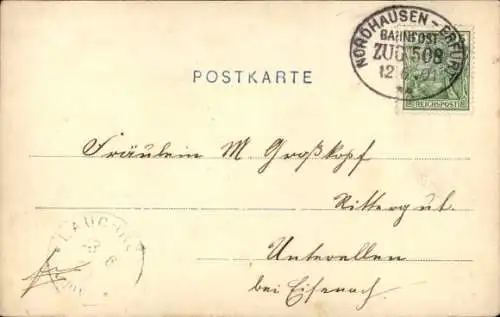 NORDHAUSEN - ERFURT
BAHNPOST
ZUG 508
12
REICHSPOST
POSTKARTE
Fräulein M. Großkopf
Rittergut.
Unterellen
bei Eisenach.
6